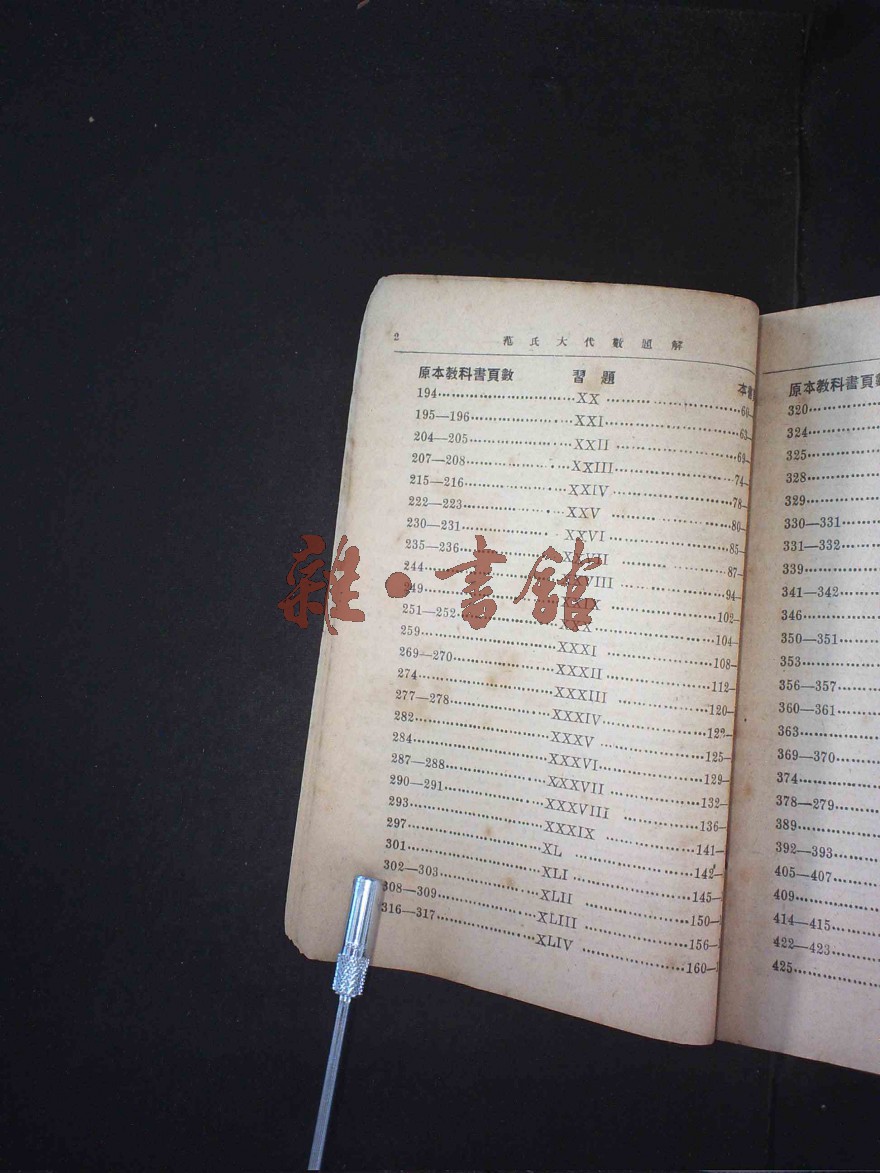 2 范氏大代數題解
原本教科書頁數 習題 本
194 XX 60—
195—196 XXI 63—
204—205 XXII 69—
207—208 XXIII 74—
215—216 XXIV 78—
222—223 XXV 80—
230—231 XXVI 85—
235—236 XXVII 87—
244 XXVIII 94—
249 XXIX 102—
251—252 XXX 104—
259 XXXI 108—
269—270 XXXII 112—
274 XXXIII 120—
277—278 XXXIV 122—
282 XXXV 125—
284 XXXVI 129—
287—288 XXXVII 132—
290—291 XXXVIII 136—
293 XXXIX 141—
297 XL 142—
301 XLI 145—
302—303 XLII 150—
308—309 XLIII 156—
316—317 XLIV 160—
雜·書館
原本教科書頁數
320
324
325
328
329
330—331
331—332
339
341—342
346
350—351
353
356—357
360—361
363
369—370
374
378—279
389
392—393
405—407
409
414—415
422—423
425